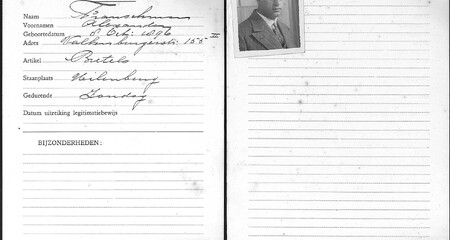 Naam Franschman
Voornamen Alexander
Geboortedatum 8 Oct. 1896
Adres Valkenburgerstr. 155 II
Artikel Bretels
Staanplaats Uilenburg
Gedurende Zondag
Datum uitreiking legitimatiebewijs
BIJZONDERHEDEN: